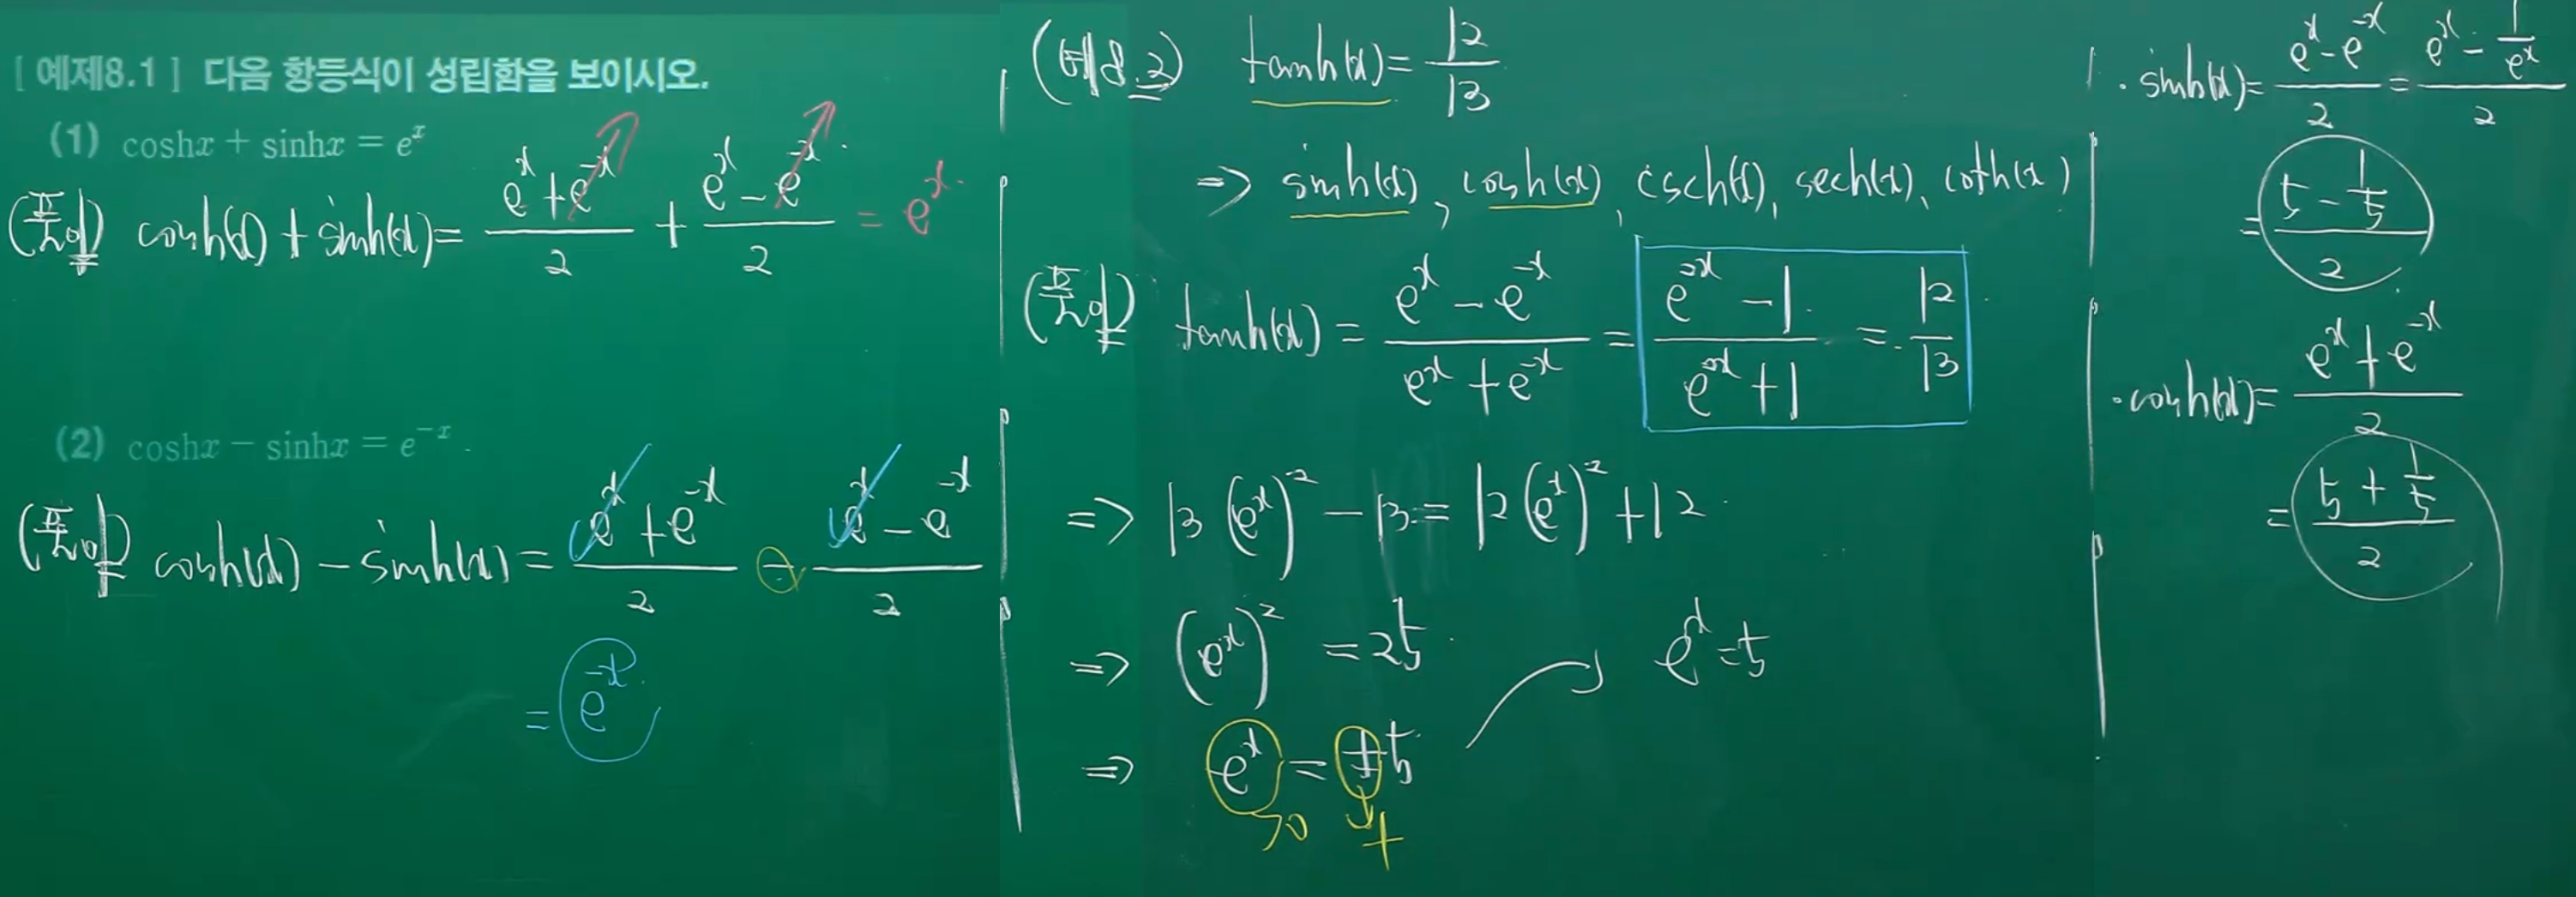 [ 예제8.1 ] 다음 항등식이 성립함을 보이시오.
(1) coshx + sinhx = e^x
(풀이) cosh(x) + sinh(x) = (e^x + e^-x)/2 + (e^x - e^-x)/2 = e^x.
(2) coshx - sinhx = e^-x.
(풀이) cosh(x) - sinh(x) = (e^x + e^-x)/2 - (e^x - e^-x)/2
= e^-x.
(예8.2) tanh(x) = 12/13
=> sinh(x), cosh(x), csch(x), sech(x), coth(x)
(풀이) tanh(x) = (e^x - e^-x)/(e^x + e^-x) = (e^2x - 1)/(e^2x + 1) = 12/13
=> 13(e^x)^2 - 13 = 12(e^x)^2 + 12
=> (e^x)^2 = 25
=> e^x = ±5 e^x = 5
>0 +
· sinh(x) = (e^x - e^-x)/2 = (e^x - 1/e^x)/2
= (5 - 1/5)/2
· cosh(x) = (e^x + e^-x)/2
= (5 + 1/5)/2